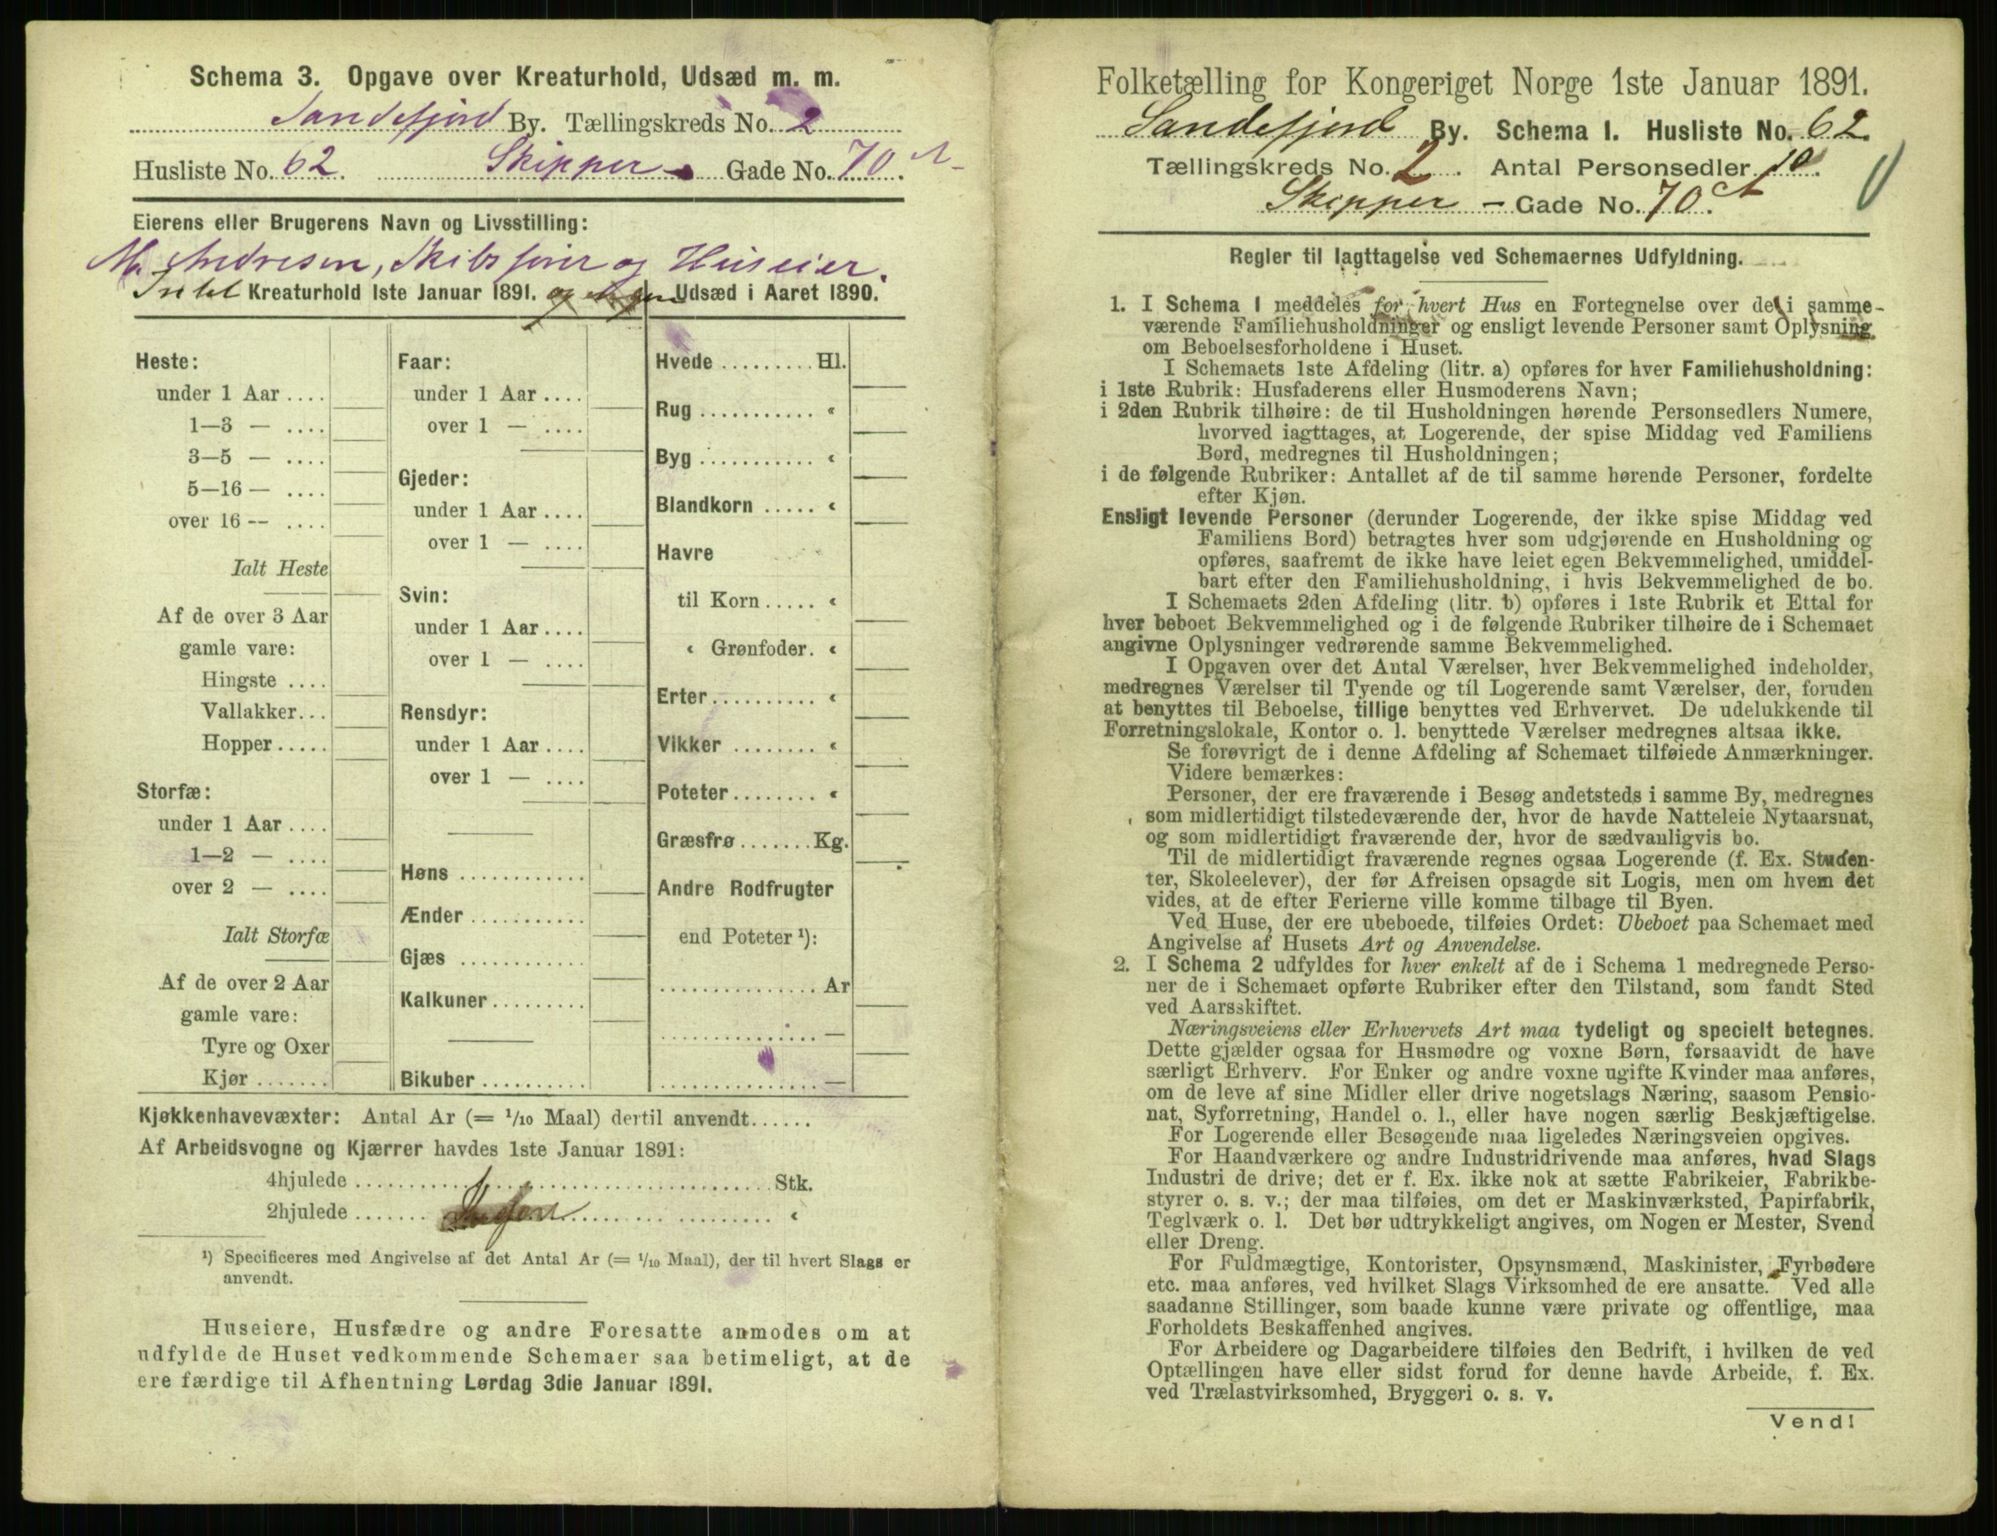 Schema 3. Opgave over Kreaturhold, Udsæd m. m.
Sandefjord By. Tællingskreds No. 2
Husliste No. 62. Skipper - Gade No. 70 A
Eierens eller Brugerens Navn og Livsstilling:
M. Andresen, Skibsfører og Huseier.
Intet Kreaturhold 1ste Januar 1891. og ingen Udsæd i Aaret 1890.
Heste:
under 1 Aar ....
1—3 — ....
3—5 — ....
5—16 — ....
over 16 — ....
Ialt Heste
Af de over 3 Aar
gamle vare:
Hingste ....
Vallakker...
Hopper .....
Storfæ:
under 1 Aar ....
1—2 — ....
over 2 — ....
Ialt Storfæ
Af de over 2 Aar
gamle vare:
Tyre og Oxer
Kjør .......
Faar:
under 1 Aar ....
over 1 — ....
Gjeder:
under 1 Aar ....
over 1 — ....
Svin:
under 1 Aar ....
over 1 — ....
Rensdyr:
under 1 Aar ....
over 1 — ....
Høns ............
Ænder ...........
Gjæs ............
Kalkuner .........
Bikuber ..........
Hvede ......... Hl.
Rug ........... «
Byg ........... «
Blandkorn ..... «
Havre
til Korn ..... «
« Grønfoder. «
Erter .......... «
Vikker ........ «
Poteter ........ «
Græsfrø ....... Kg.
Andre Rodfrugter
end Poteter ¹):
............... Ar
............... —
............... —
Kjøkkenhavevæxter: Antal Ar (= 1/10 Maal) dertil anvendt......
Af Arbeidsvogne og Kjærrer havdes 1ste Januar 1891:
4hjulede ........................ Stk.
2hjulede ....... Ingen ........ «
¹) Specificeres med Angivelse af det Antal Ar (= 1/10 Maal), der til hvert Slags er
anvendt.
Huseiere, Husfædre og andre Foresatte anmodes om at
udfylde de Huset vedkommende Schemaer saa betimeligt, at de
ere færdige til Afhentning Lørdag 3die Januar 1891.
Folketælling for Kongeriget Norge 1ste Januar 1891.
Sandefjord By. Schema I. Husliste No. 62
Tællingskreds No. 2. Antal Personsedler 10.
Skipper - Gade No. 70. A
Regler til Iagttagelse ved Schemaernes Udfyldning.
1. I Schema 1 meddeles for hvert Hus en Fortegnelse over de i samme-
værende Familiehusholdninger og ensligt levende Personer samt Oplysning
om Beboelsesforholdene i Huset.
I Schemaets 1ste Afdeling (litr. a) opføres for hver Familiehusholdning:
i 1ste Rubrik: Husfaderens eller Husmoderens Navn;
i 2den Rubrik tilhøire: de til Husholdningen hørende Personsedlers Numere,
hvorved iagttages, at Logerende, der spise Middag ved Familiens
Bord, medregnes til Husholdningen;
i de følgende Rubriker: Antallet af de til samme hørende Personer, fordelte
efter Kjøn.
Ensligt levende Personer (derunder Logerende, der ikke spise Middag ved
Familiens Bord) betragtes hver som udgjørende en Husholdning og
opføres, saafremt de ikke have leiet egen Bekvemmelighed, umiddel-
bart efter den Familiehusholdning, i hvis Bekvemmelighed de bo.
I Schemaets 2den Afdeling (litr. b) opføres i 1ste Rubrik et Ettal for
hver beboet Bekvemmelighed og i de følgende Rubriker tilhøire de i Schemaet
angivne Oplysninger vedrørende samme Bekvemmelighed.
I Opgaven over det Antal Værelser, hver Bekvemmelighed indeholder,
medregnes Værelser til Tyende og til Logerende samt Værelser, der, foruden
at benyttes til Beboelse, tillige benyttes ved Erhvervet. De udelukkende til
Forretningslokale, Kontor o. l. benyttede Værelser medregnes altsaa ikke.
Se forøvrigt de i denne Afdeling af Schemaet tilføiede Anmærkninger.
Videre bemærkes:
Personer, der ere fraværende i Besøg andetsteds i samme By, medregnes
som midlertidigt tilstedeværende der, hvor de havde Natteleie Nytaarsnat,
og som midlertidigt fraværende der, hvor de sædvanligvis bo.
Til de midlertidigt fraværende regnes ogsaa Logerende (f. Ex. Studen-
ter, Skoleelever), der før Afreisen opsagde sit Logis, men om hvem det
vides, at de efter Ferierne ville komme tilbage til Byen.
Ved Huse, der ere ubeboede, tilføies Ordet: Ubeboet paa Schemaet med
Angivelse af Husets Art og Anvendelse.
2. I Schema 2 udfyldes for hver enkelt af de i Schema 1 medregnede Perso-
ner de i Schemaet opførte Rubriker efter den Tilstand, som fandt Sted
ved Aarsskiftet.
Næringsveiens eller Erhvervets Art maa tydeligt og specielt betegnes.
Dette gjælder ogsaa for Husmødre og voxne Børn, forsaavidt de have
særligt Erhverv. For Enker og andre voxne ugifte Kvinder maa anføres,
om de leve af sine Midler eller drive nogetslags Næring, saasom Pensio-
nat, Syforretning, Handel o. l., eller have nogen særlig Beskjæftigelse.
For Logerende eller Besøgende maa ligeledes Næringsveien opgives.
For Haandværkere og andre Industridrivende maa anføres, hvad Slags
Industri de drive; det er f. Ex. ikke nok at sætte Fabrikeier, Fabrikbe-
styrer o. s. v.; der maa tilføies, om det er Maskinværksted, Papirfabrik,
Teglværk o. l. Det bør udtrykkeligt angives, om Nogen er Mester, Svend
eller Dreng.
For Fuldmægtige, Kontorister, Opsynsmænd, Maskinister, Fyrbødere
etc. maa anføres, ved hvilket Slags Virksomhed de ere ansatte. Ved alle
saadanne Stillinger, som baade kunne være private og offentlige, maa
Forholdets Beskaffenhed angives.
For Arbeidere og Dagarbeidere tilføies den Bedrift, i hvilken de ved
Optællingen have eller sidst forud for denne havde Arbeide, f. Ex.
ved Trælastvirksomhed, Bryggeri o. s. v.
Vend!